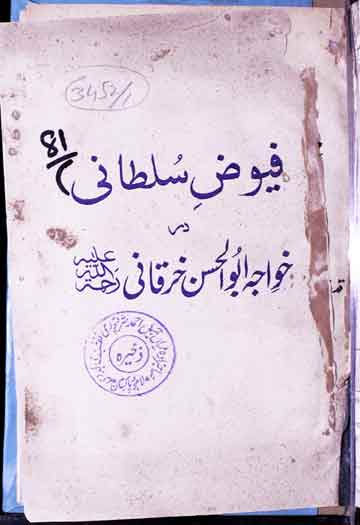 3452/1
81/
فیوضِ سُلطانی
در
خواجہ ابوالحسن خرقانی رحمۃ اللہ علیہ
ذخیرہ